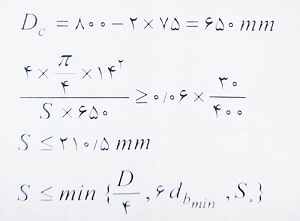 D_c = ۸۰۰ − ۲ × ۷۵ = ۶۵۰ mm
(۴ × π/۴ × ۱۴^۲) / (S × ۶۵۰) ≥ ۰/۰۶ × ۳۰/۴۰۰
S ≤ ۲۱۰/۵ mm
S ≤ min {D/۴, ۶ d_{b_min}, S_۰}